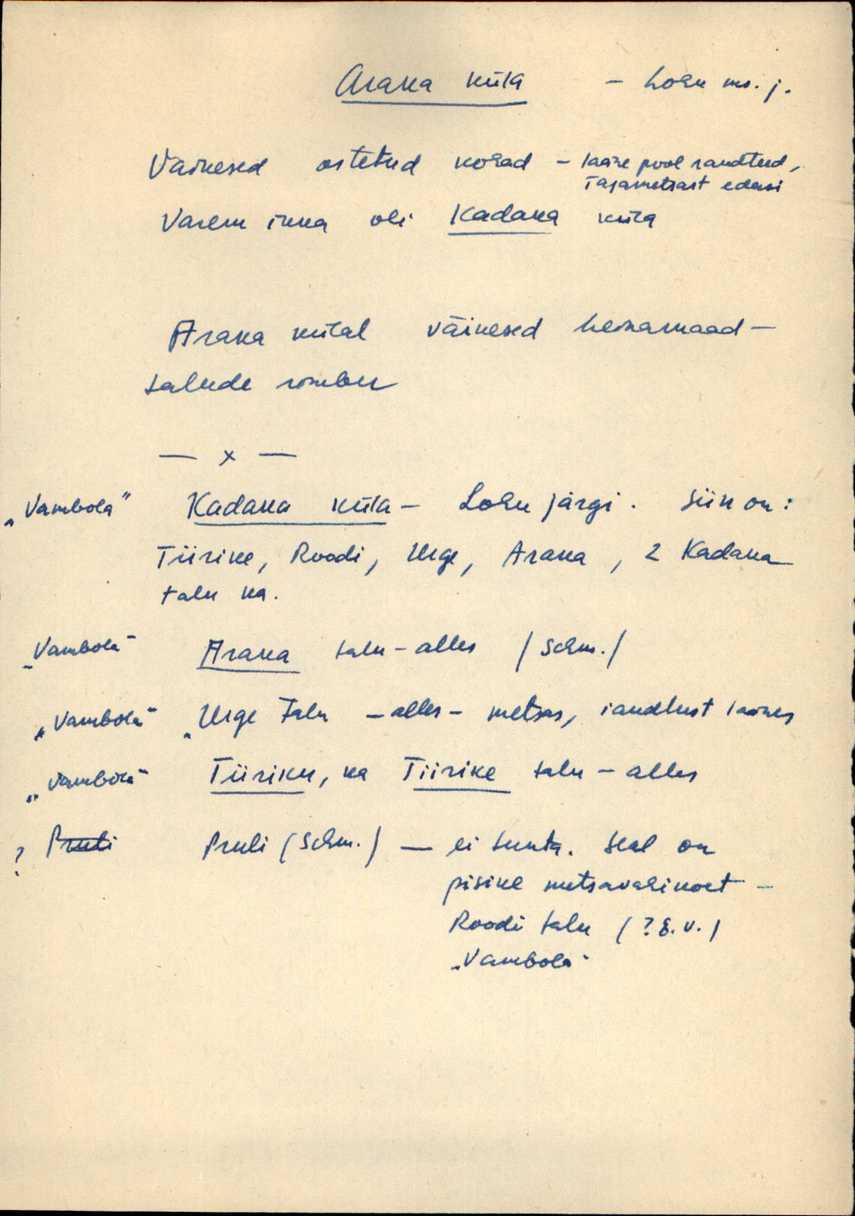 Araka küla – Lohu ms. j.
Väikesed ostetud kohad – lääne pool raudteed,
Tagametsast edasi
Varem ikka oli Kadaka küla
Araka külal väikesed heinamaad –
talude ümber
— x —
„Vambola" Kadaka küla – Lohu järgi. Siin on:
Tiirike, Roodi, Urge, Araka, 2 Kadaka
talu ka.
„Vambola" Araka talu – alles / Schm. /
„Vambola" „Urge talu – alles – metsas, raudteest läänes
„Vambola" Tiiriku, ka Tiirike talu – alles
? Pruli Pruli (Schm.) — ei tunta. Seal on
pisike metsavahikoht –
Roodi talu ( ? E. V. )
„Vambola"